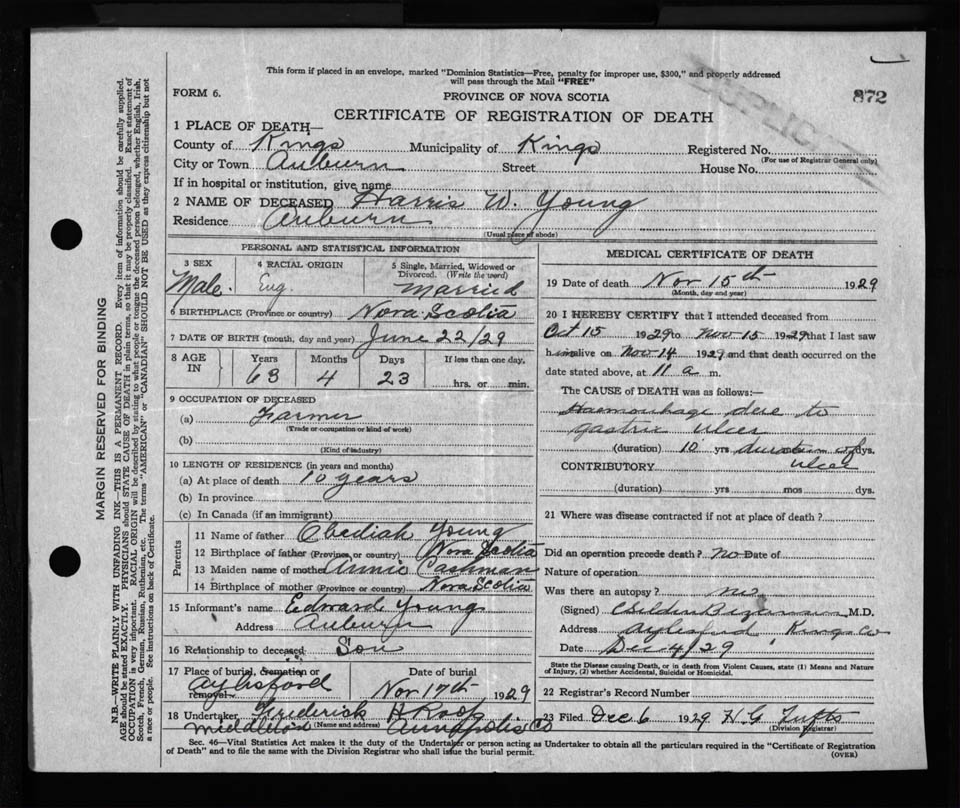 This form if placed in an envelope, marked "Dominion Statistics—Free, penalty for improper use, $300," and properly addressed
will pass through the Mail "FREE"
FORM 6.
PROVINCE OF NOVA SCOTIA
872
DUPLICATE
CERTIFICATE OF REGISTRATION OF DEATH
1 PLACE OF DEATH—
County of Kings Municipality of Kings Registered No.
(For use of Registrar General only)
City or Town Auburn Street House No.
If in hospital or institution, give name
2 NAME OF DECEASED Harris W. Young
Residence Auburn
(Usual place of abode)
PERSONAL AND STATISTICAL INFORMATION
3 SEX 4 RACIAL ORIGIN 5 Single, Married, Widowed or
Divorced. (Write the word)
Male. Eng. Married
6 BIRTHPLACE (Province or country) Nova Scotia
7 DATE OF BIRTH (month, day and year) June 22/29
8 AGE IN Years Months Days If less than one day,
63 4 23 hrs. or min.
9 OCCUPATION OF DECEASED
(a) Farmer
(Trade or occupation or kind of work)
(b)
(Kind of industry)
10 LENGTH OF RESIDENCE (in years and months)
(a) At place of death 10 years
(b) In province
(c) In Canada (if an immigrant)
Parents
11 Name of father Obediah Young
12 Birthplace of father (Province or country) Nova Scotia
13 Maiden name of mother Annie Cashman
14 Birthplace of mother (Province or country) Nova Scotia
15 Informant's name Edward Young
Address Auburn
16 Relationship to deceased Son
17 Place of burial, cremation or Date of burial
removal Aylesford Nov 17th 1929
18 Undertaker Frederick H Roop
(Name and address)
Middleton Annapolis Co
MEDICAL CERTIFICATE OF DEATH
19 Date of death Nov 15th 1929
(Month, day and year)
20 I HEREBY CERTIFY that I attended deceased from
Oct 15 1929 to Nov 15 1929 that I last saw
him alive on Nov 14 1929 and that death occurred on
date stated above, at 11 a m.
The CAUSE of DEATH was as follows:
Haemorrhage due to
gastric ulcer
(duration) 10 yrs duration of dys.
CONTRIBUTORY ulcer
(duration) yrs mos dys.
21 Where was disease contracted if not at place of death?
Did an operation precede death? no Date of
Nature of operation
Was there an autopsy? no
(Signed) M.D.
Address Aylesford Kings Co
Date Dec 4/29
State the Disease causing Death, or in death from Violent Causes, state (1) Means and Nature
of Injury, (2) whether Accidental, Suicidal or Homicidal.
22 Registrar's Record Number
23 Filed Dec 6 1929 H G Tufts
(Division Registrar)
Sec. 46—Vital Statistics Act makes it the duty of the Undertaker or person acting as Undertaker to obtain all the particulars required in the "Certificate of Registration
of Death" and to file the same with the Division Registrar who shall issue the burial permit.
(OVER)
MARGIN RESERVED FOR BINDING
N.B.—WRITE PLAINLY WITH UNFADING INK—THIS IS A PERMANENT RECORD. Every item of information should be carefully supplied.
AGE should be stated EXACTLY. PHYSICIANS should STATE CAUSE OF DEATH in plain terms, so that it may be properly classified. Exact statement of
OCCUPATION is very important. RACIAL ORIGIN will be described by stating to what people or tongue the deceased person belonged, whether English, Irish,
Scotch, French, German, Russian, Ruthenian, etc. The terms "AMERICAN" or "CANADIAN" SHOULD NOT BE USED as they express citizenship but not
a race or people. See instructions on back of Certificate.